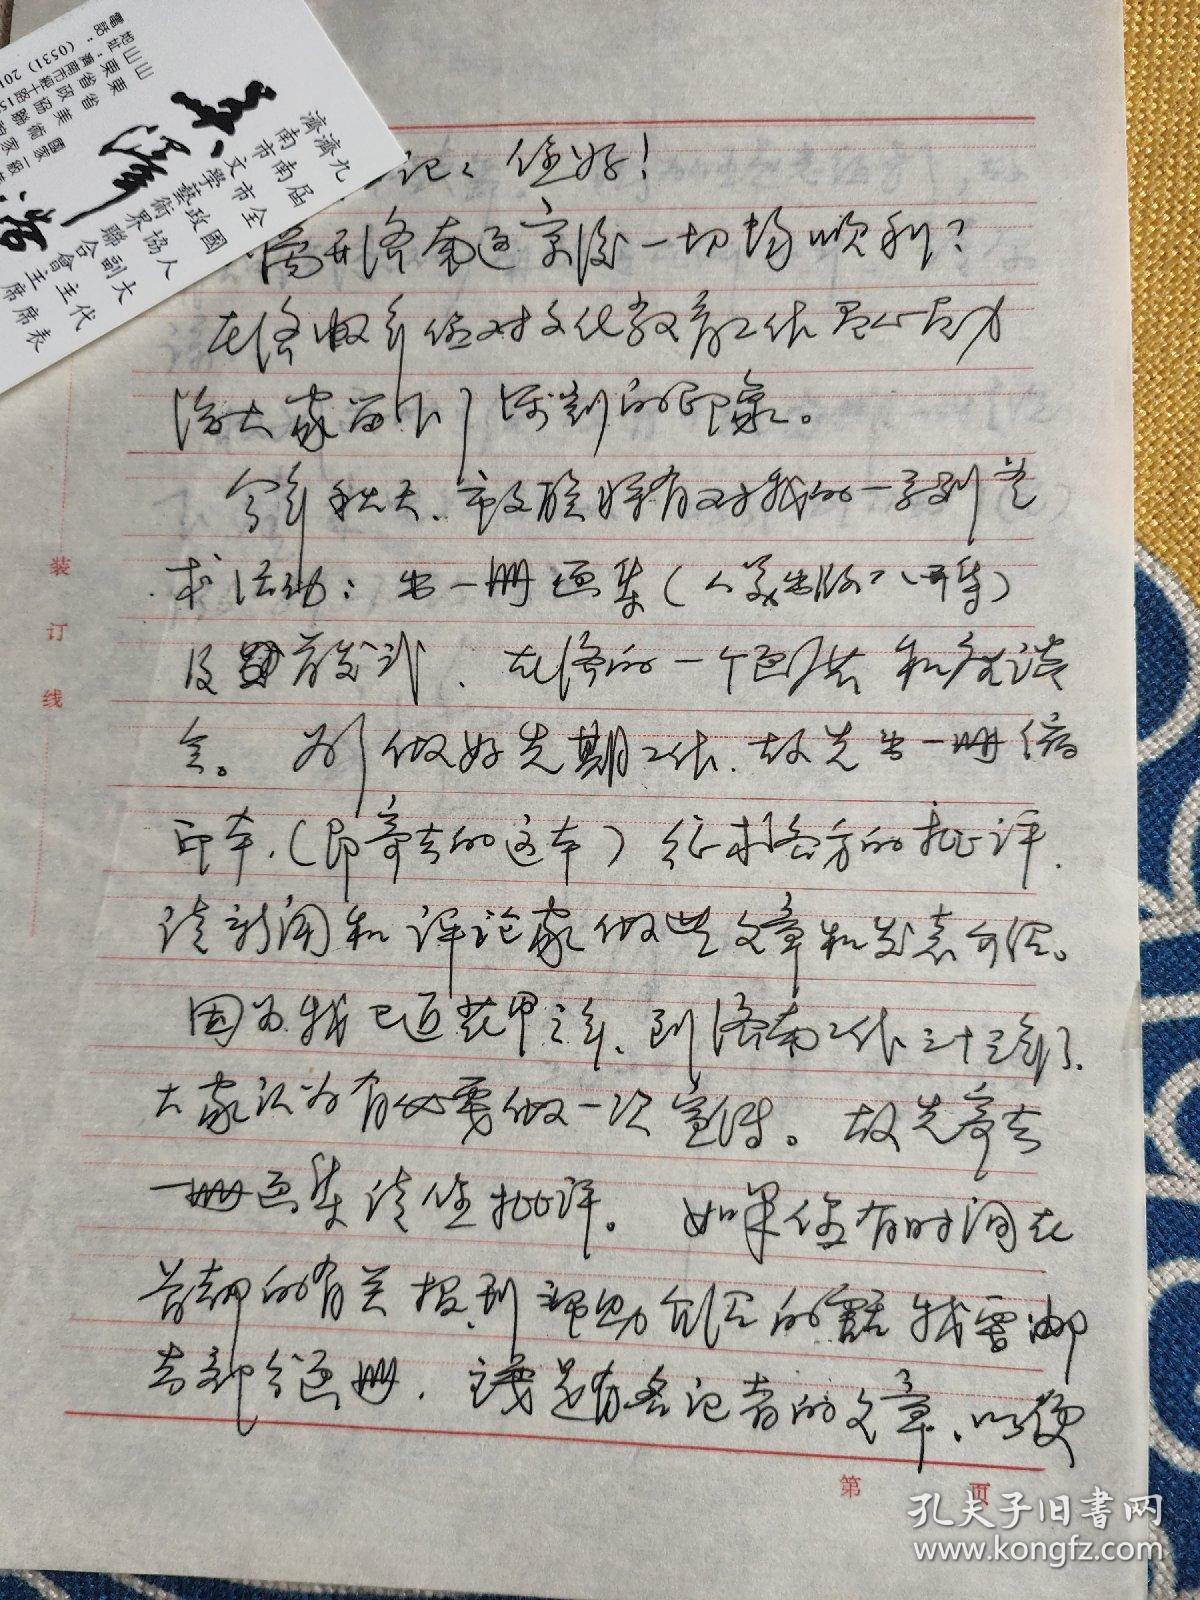 记：您好！
离开济南返京后一切均顺利？
在济数年您对文化教育工作尽心尽力
给大家留下了深刻的印象。
今年秋天、市文联将有对我的一系列艺
术活动：出一册画集（人美出版 八开本）
及首发式、在济的一个画展和座谈
会。为了做好先期工作、故先出一册
印本，（即寄去的这本）征求各方的批评、
请新闻和评论家做些文章和发表介绍。
因为我已近花甲之年、到济南工作三十三年了、
大家认为有必要做一次宣传。故先寄去
一册画集请您批评。如果您有时间在
首都的有关报刊帮助介绍的话 我会邮
去部分画册、或是有名记者的文章、以便
装
订
线
第 页
九届全國人大代表
濟南市政協副主席
濟南市文學藝術界聯合會主席
孔夫子旧书网
www.kongfz.com